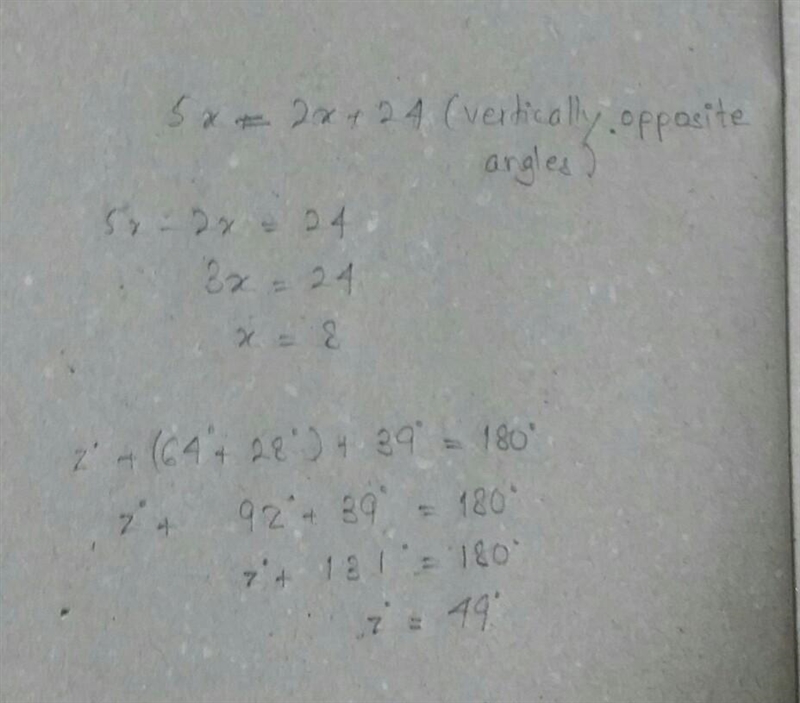 5x = 2x + 24 (vertically opposite
angles)
5x - 2x = 24
3x = 24
x = 8
z° + (64° + 28°) + 39° = 180°
z° + 92° + 39° = 180°
z° + 131° = 180°
z° = 49°